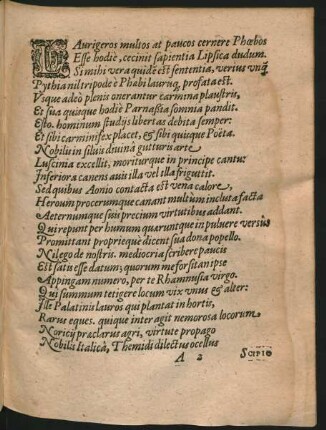 VT Aurigeros multos at paucos cernere Phœbos
Esse hodiè, cecinit sapientia Lipsica dudum.
Si mihi vera quidē est sententia, verius vnq̃
Pythia nil tripode è Phœbi lauruq; profata est.
Vsque adeò plenis onerantur carmina plaustris,
Et sua quisque hodiè Parnaßia somnia pandit.
Esto. hominum studijs libertas debita semper:
Et sibi carminifex placet, & sibi quisque Poëta.
Nobilis in siluis diuinâ gutturis arte
Luscinia excellit, moriturque in principe cantu:
Inferiora canens auis illa vel illa friguttit.
Sed quibus Aonio contacta est vena calore,
Heroum procerumque canant multùm inclyta facta
Aeternumque sui precium virtutibus addant.
Qui repunt per humum quaruntque in puluere versus
Promittant proprieque dicent sua dona popello.
Ni lego de nostris. mediocria scribere paucis
Est satis esse datum; quorum me forsitan ipse
Appingam numero, per te Rhamnusia virgo.
Qui summum tetigere locum vix vnus & alter:
Ille Palatinis lauros qui plantat in hortis,
Rarus eques. quique inter agit nemorosa locorum
Noricij præclarus agri, virtute propago
Nobilis Italicâ, Themidi dilectus ocellus
A 2 SCIPIO